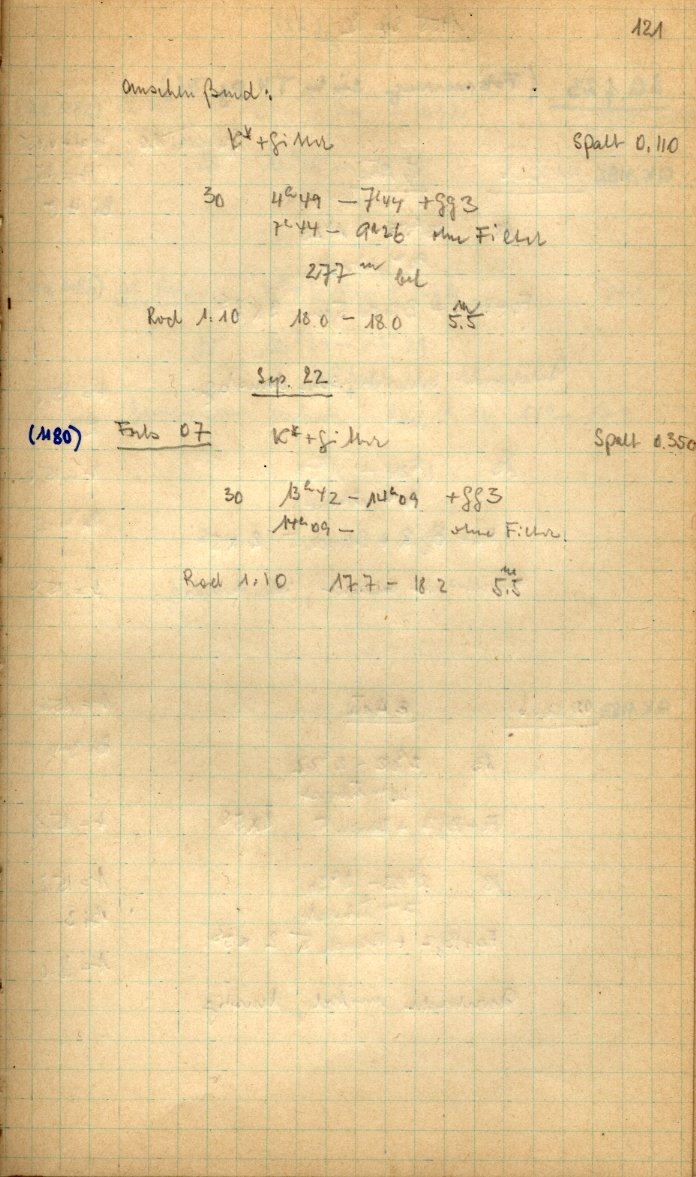 121
anschließend:
K* + Gitter Spalt 0,110
30 4h49 – 7h44 + Gg3
7h44 – 9h26 ohne Filter
277m bel
Rod 1:10 18.0 – 18.0 5.5m
Sep. 22
(1180) 07 K* + Gitter Spalt 0.350
30 13h42 – 14h09 + Gg3
14h09 – ohne Filter.
Rod 1:10 17.7 – 18.2 5.5m